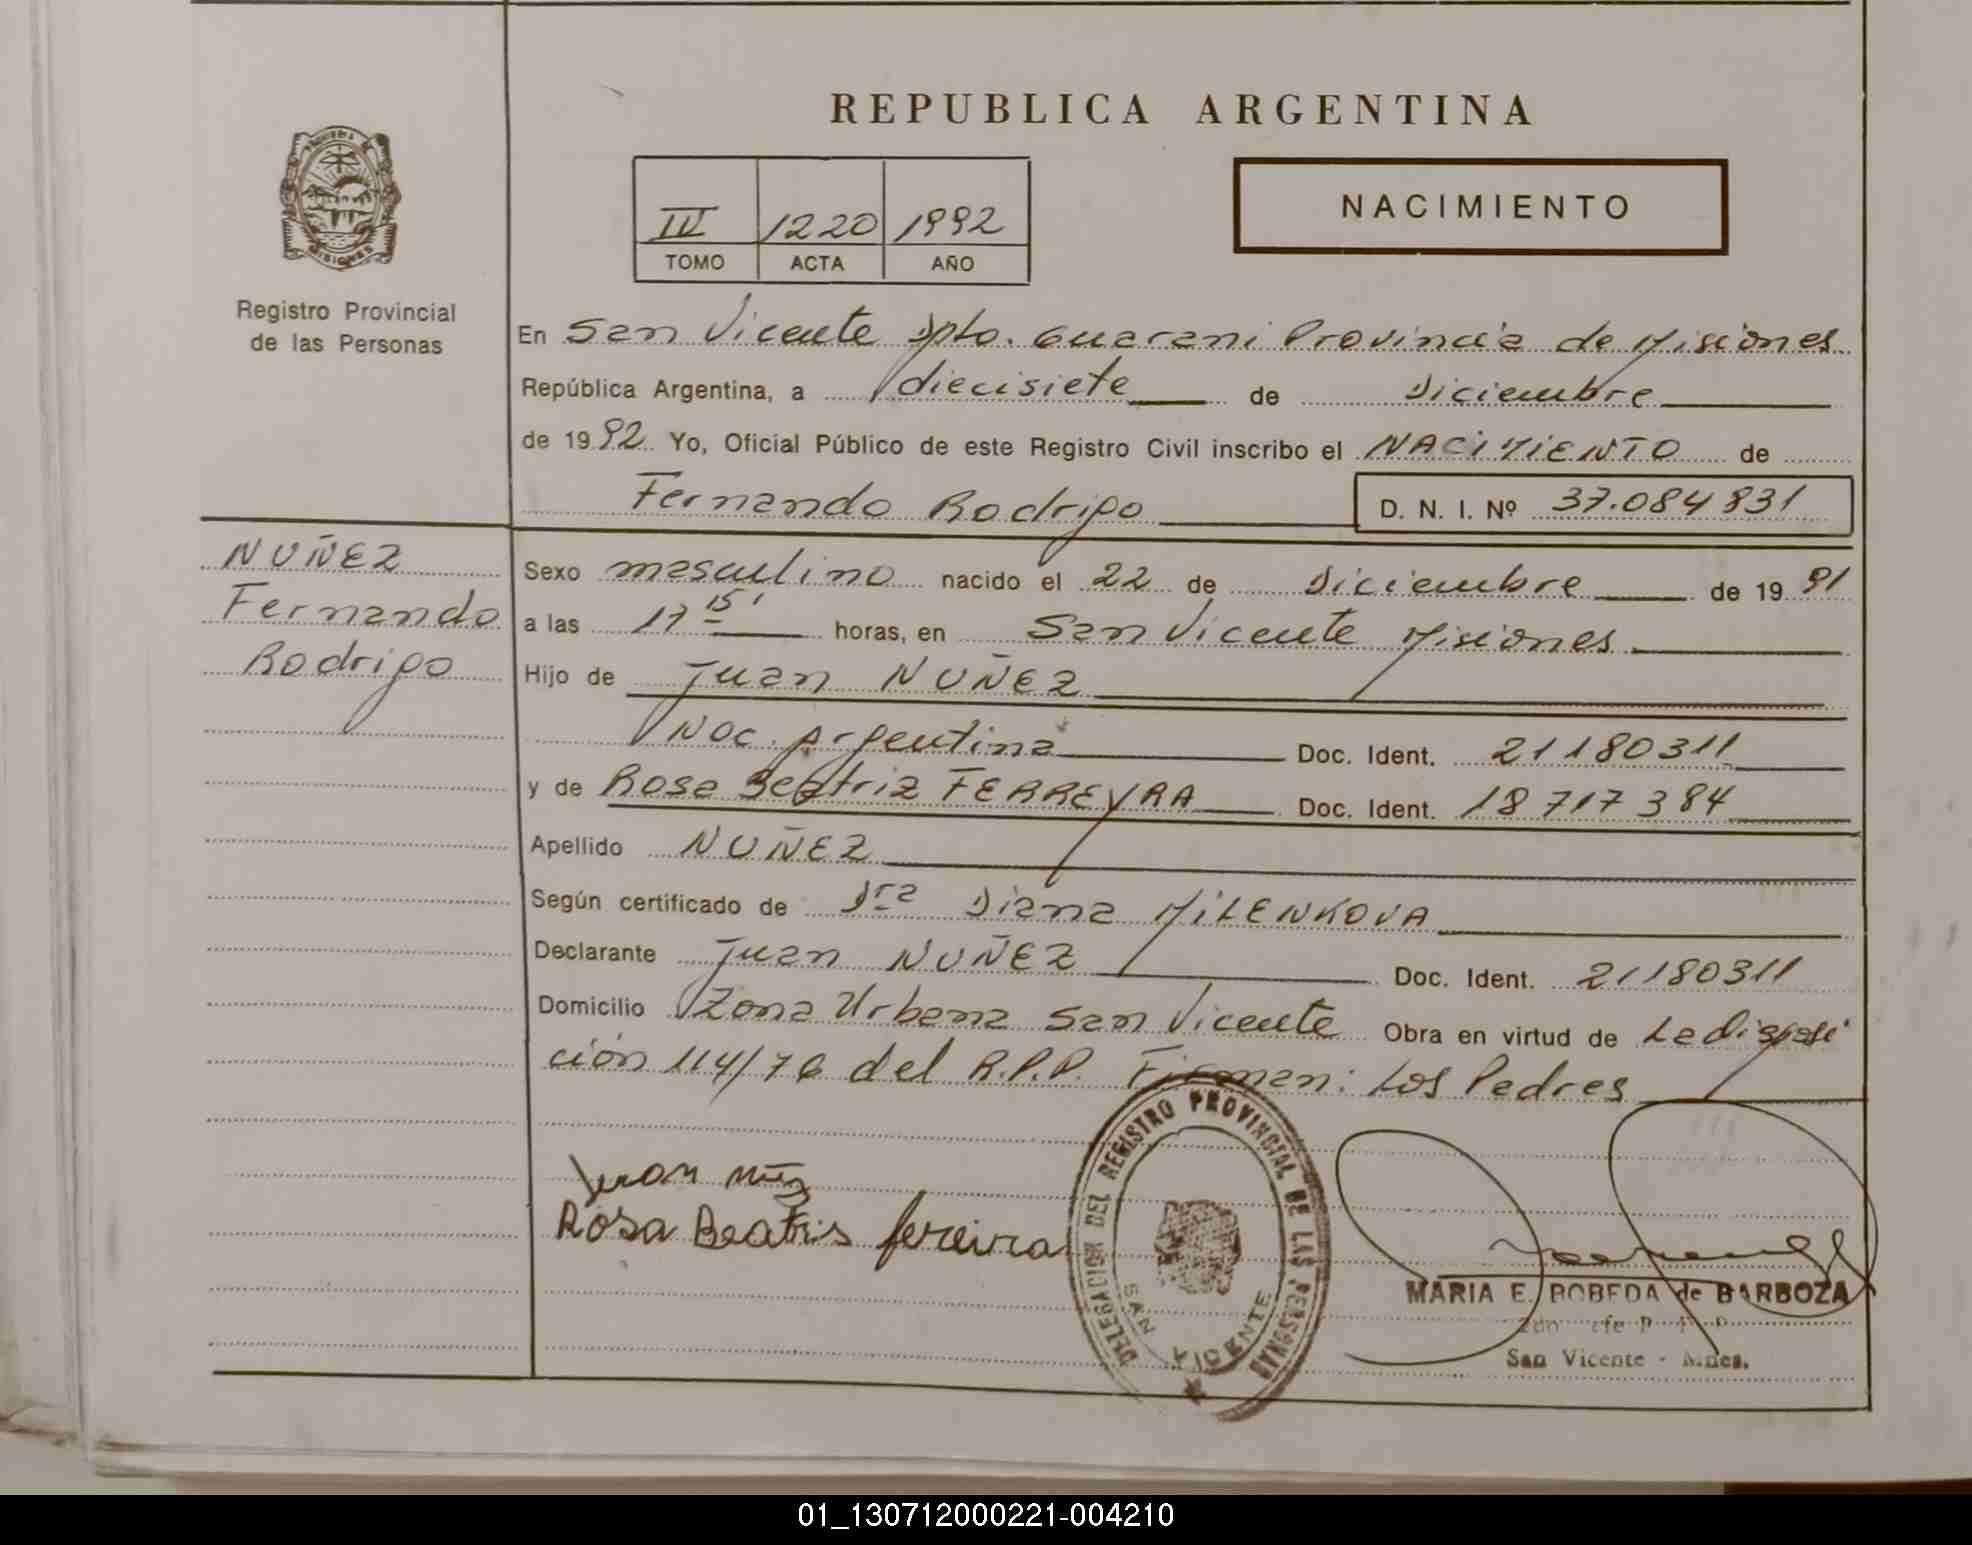 REPUBLICA ARGENTINA
IV 1220 1992
TOMO ACTA AÑO
NACIMIENTO
MISIONES
Registro Provincial
de las Personas
En San Vicente Dpto. Guarani Provincia de Misiones
República Argentina, a diecisiete de Diciembre
de 1992 Yo, Oficial Público de este Registro Civil inscribo el NACIMIENTO de
Fernando Rodrigo D. N. I. Nº 37.084831
NUÑEZ
Fernando
Rodrigo
Sexo masculino nacido el 22 de Diciembre de 1991
a las 17 15' horas, en San Vicente Misiones
Hijo de Juan NUÑEZ
Nac. Argentina Doc. Ident. 21180311
y de Rosa Beatriz FERREYRA Doc. Ident. 18717384
Apellido NUÑEZ
Según certificado de Dra Diana MILENKOVA
Declarante Juan NUÑEZ Doc. Ident. 21180311
Domicilio Zona Urbana San Vicente Obra en virtud de La disposi
ción 114/76 del R.P.P. Firman: Los Padres
Juan
Rosa Beatris fereira
DELEGACION DEL REGISTRO PROVINCIAL DE LAS PERSONAS
SAN VICENTE
MARIA E. POBEDA de BARBOZA
San Vicente - Mnes.
01_130712000221-004210